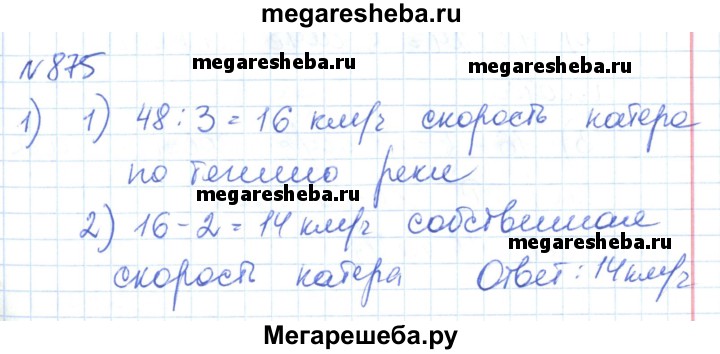 megaresheba.ru
N 875
megaresheba.ru
megaresheba.ru
1) 1) 48 : 3 = 16 км/ч скорость катера
по течению реки
megaresheba.ru
2) 16 - 2 = 14 км/ч собственная
megaresheba.ru
скорость катера Ответ: 14 км/ч
Мегарешеба.ру